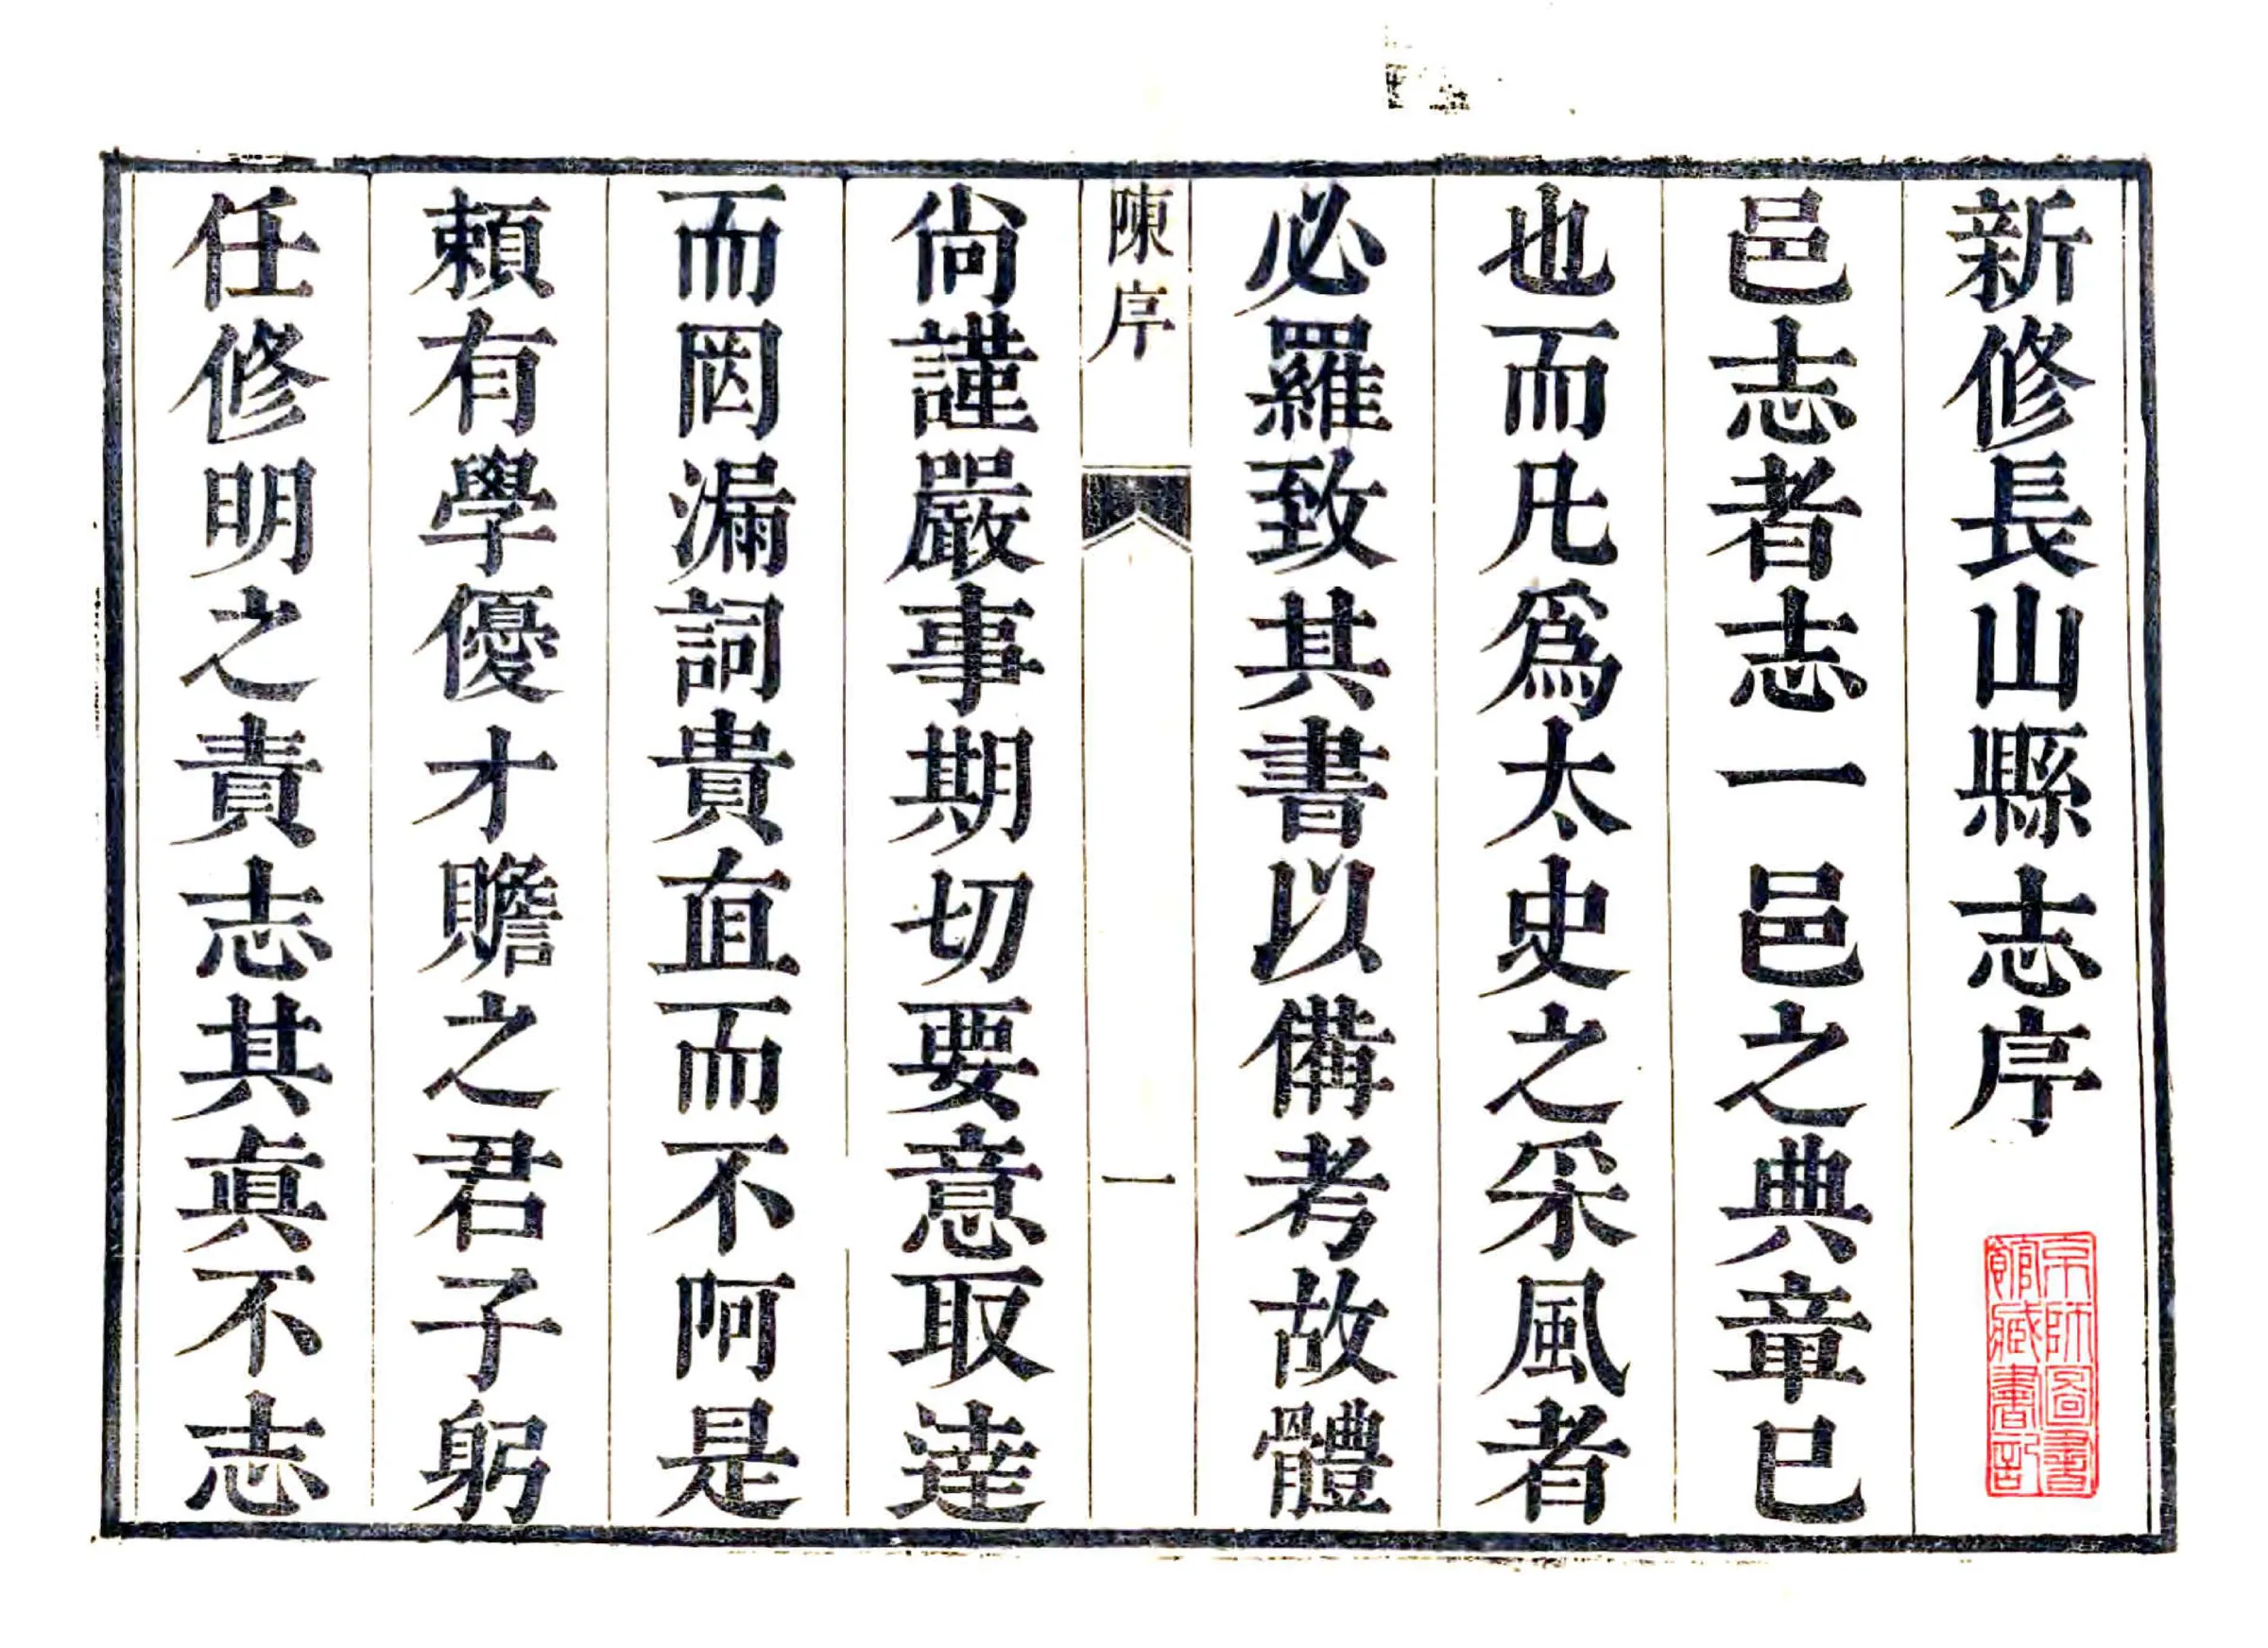 新修長山縣志序
京師圖書
館藏書記
邑志者志一邑之典章巳
也而凡爲太史之采風者
必羅致其書以備考故體
陳序
一
尚謹嚴事期切要意取逹
而罔漏詞貴直而不阿是
頼有學優才贍之君子躬
任修明之責志其眞不志